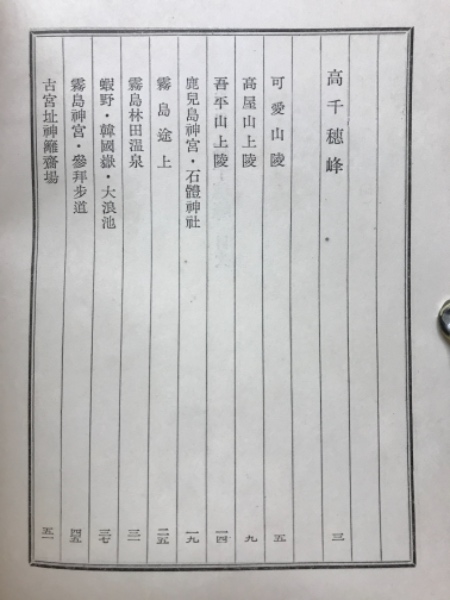 高千穗峰 三
可愛山陵 五
高屋山上陵 九
吾平山上陵 一四
鹿兒島神宮・石體神社 一九
霧島途上 二五
霧島林田温泉 三一
蝦野・韓國嶽・大浪池 三七
霧島神宮・參拜步道 四五
古宮址神籬齋場 五一